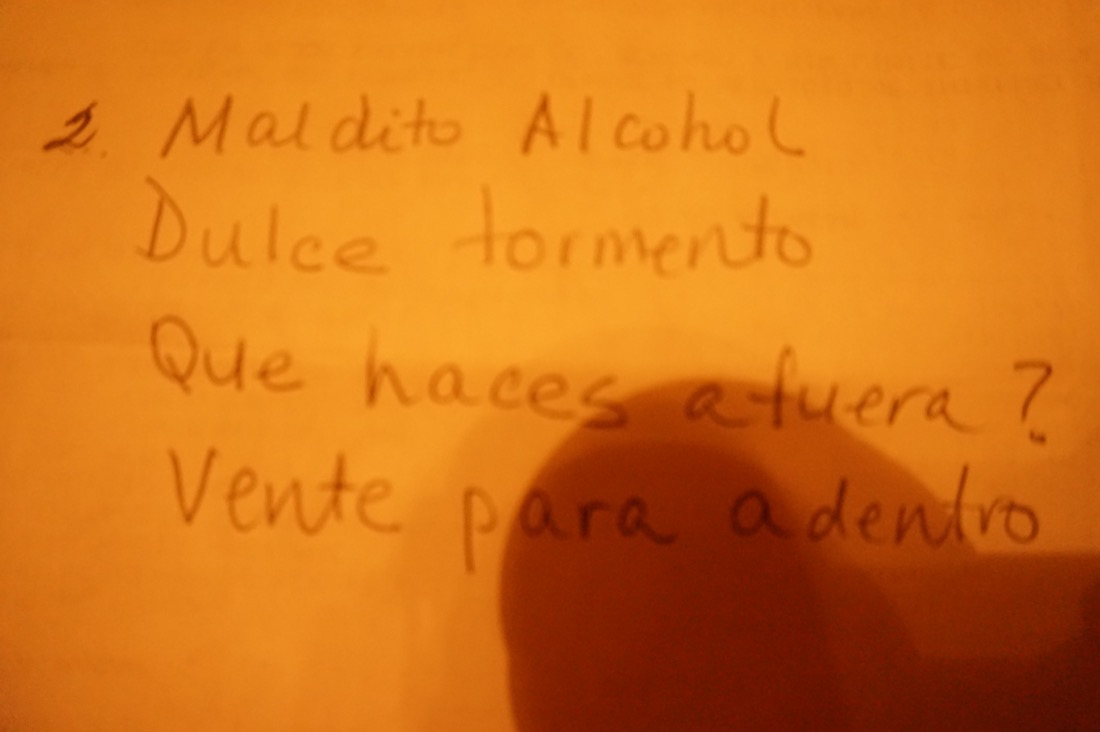 2. Maldito Alcohol
Dulce tormento
Que haces afuera?
Vente para adentro